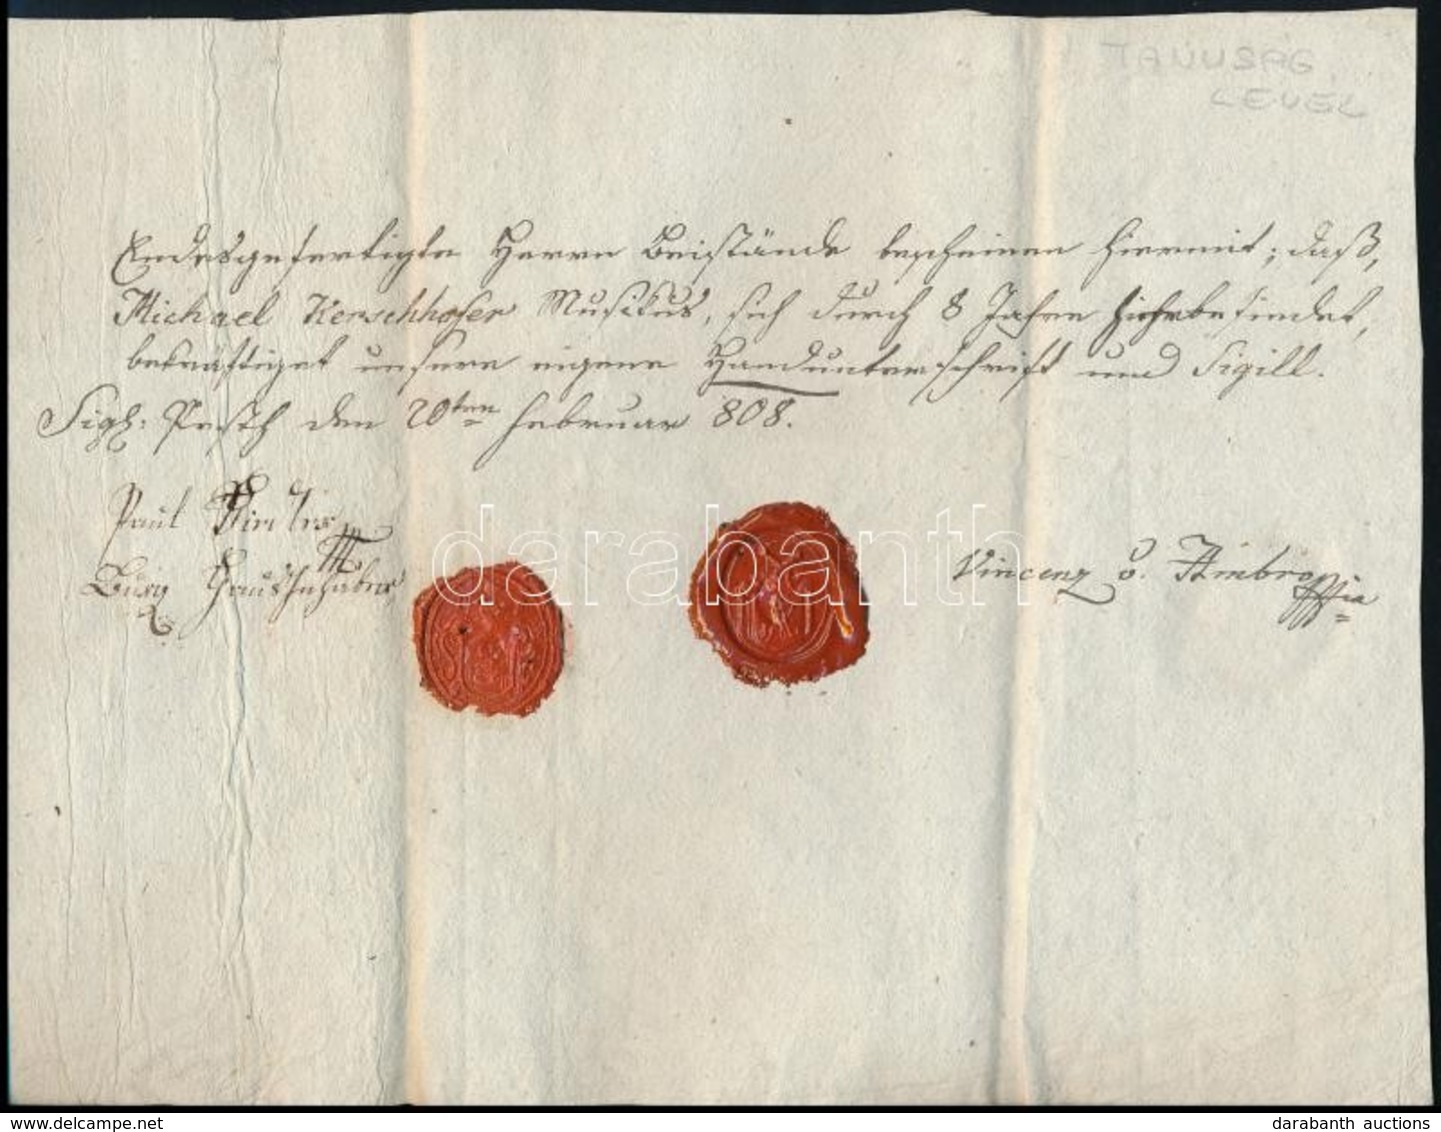 TANUSÁG
LEVEL
Endesgefertigte Herrn Beistände bescheinen hiermit; daß,
Michael Kerschhofer Musikus, sich durch 8 Jahre hier befindet,
bekräftiget unsere eigene Handunterschrift und Sigill.
Sigl: Pesth den 20ten Februar 808.
Paul
Burg Hausinhaber
Vincenz v. Ambro
darabanth
delcampe.net
darabanth auctions